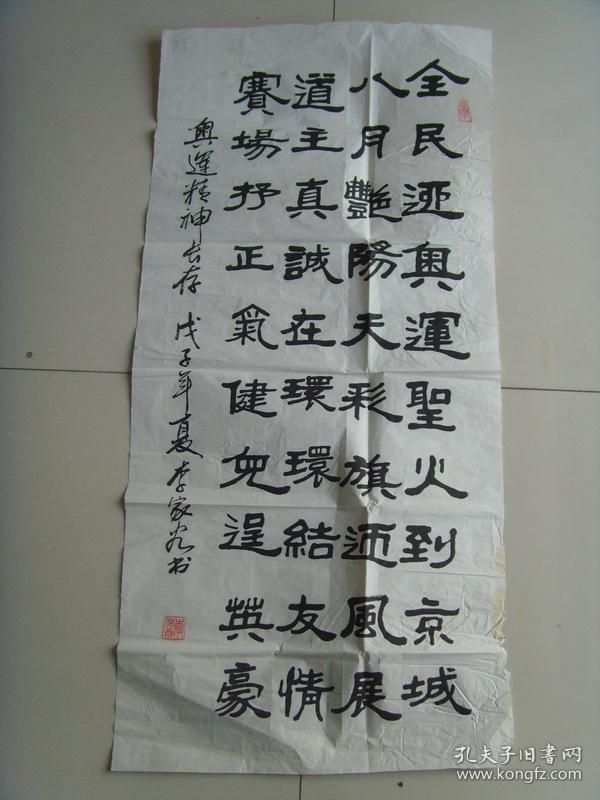 全民迎奧運聖火到京城
八月艷陽天彩旗迎風展
道主真誠在環環結友情
賽場抒正氣健兒逞英豪
奥運精神长存 戊子年夏 李家 书
孔夫子旧書网
www.kongfz.com